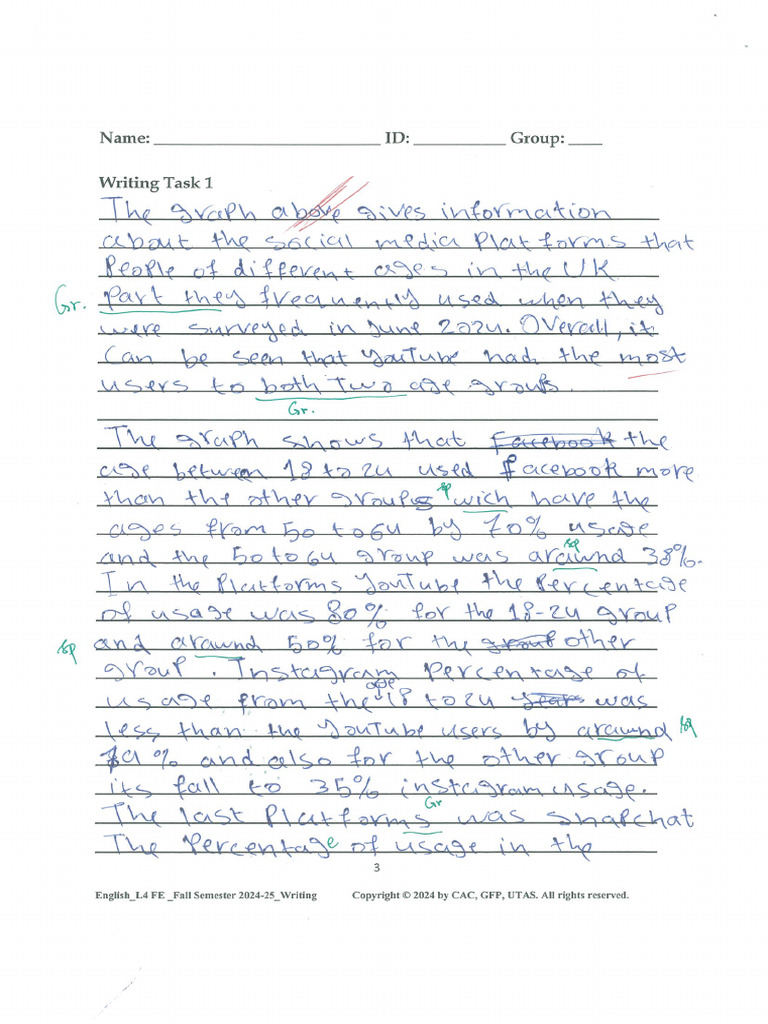 Name: ____________ ID: ____________ Group: ____
Writing Task 1
The graph above gives information
about the social media Platforms that
People of different ages in the UK
Gr. Part they frequently used when they
were surveyed in June 2024. Overall, it
Can be seen that YouTube had the most
users to both two age groups.
Gr.
The graph shows that Facebook the
age between 18 to 24 used facebook more
than the other groups sp wich have the
ages from 50 to 64 by 70% usage
sp
and the 50 to 64 group was arawnd 38%.
In the Platforms YouTube the Percentage
of usage was 80% for the 18-24 group
sp and arawnd 50% for the group other
group. Instagram Percentage of
age
usage from the 18 to 24 years was
less than the YouTube users by arawnd sp
71% and also for the other group
its fall to 35% instagram usage.
Gr
The last Platforms was snapchat
The Percentage of usage in the
3
English_L4 FE _Fall Semester 2024-25_Writing Copyright © 2024 by CAC, GFP, UTAS. All rights reserved.